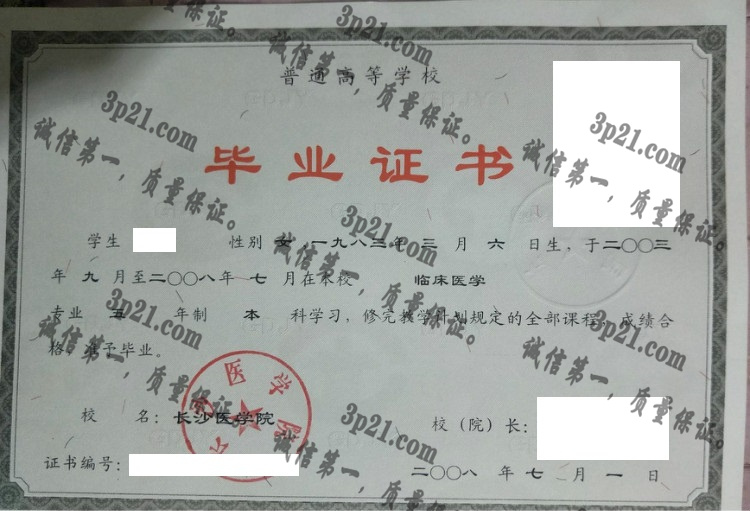 普通高等学校
毕业证书
学生 性别 女,一九八二年 三 月 六 日生,于二〇〇三
年 九 月至二〇〇八年 七 月在本校 临床医学
专业 五 年制 本 科学习,修完教学计划规定的全部课程,成绩合
格,准予毕业。
医学院
校 名:长沙医学院
校(院)长:
证书编号:
二〇〇八 年 七 月 一 日
质量保证。
3p21.com
诚信第一,质量保证。
3p21.com
诚信第一,质量保证。
3p21.com
诚信第一,质量保证。
3p21.com
诚信第一,质量保证。
3p21.com
诚信第一,质量保证。
3p21.com
诚信第一,质量保证。
3p21.com
诚信第一,质量保证。